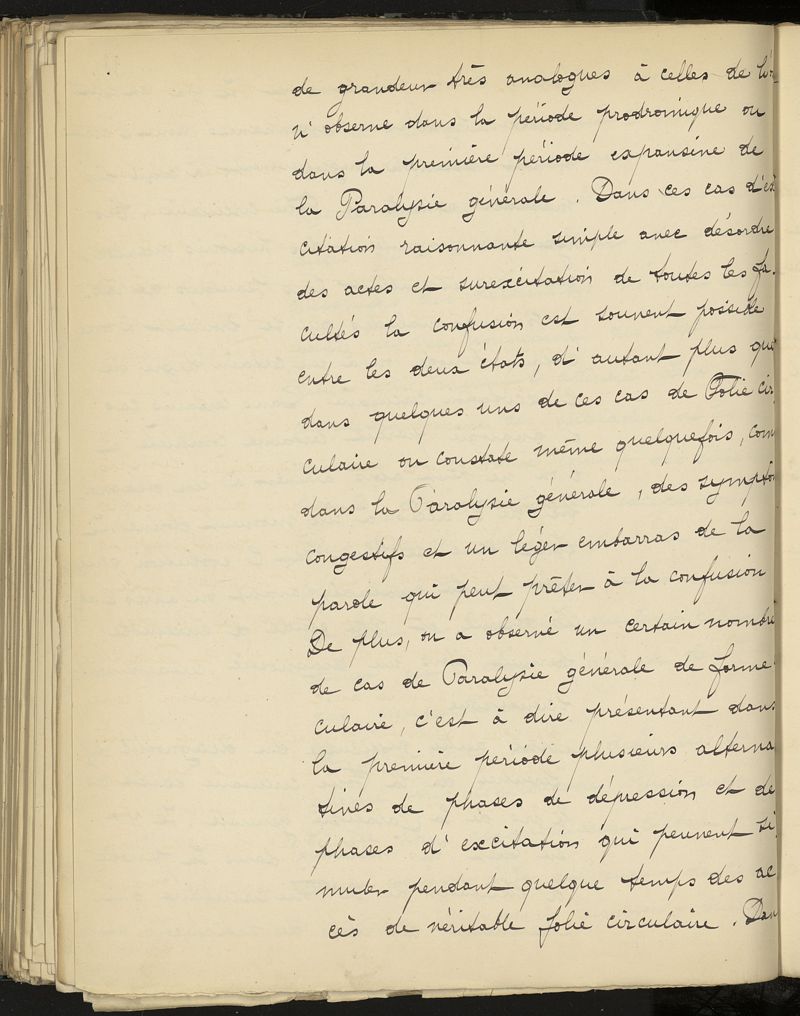 de grandeur très analogues à celles de l'on
n'observe dans la période prodromique ou
dans la première période expansive de
la Paralysie générale. Dans ces cas d'ex
citation raisonnante simple avec désordre
des actes et surexcitation de toutes les fa-
cultés la confusion est souvent possible
entre les deux états, d'autant plus que
dans quelques uns de ces cas de Folie cir
culaire on constate même quelquefois, com
dans la Paralysie générale, des symptôm
congestifs et un léger embarras de la
parole qui peut prêter à la confusion
De plus, on a observé un certain nombre
de cas de Paralysie générale de forme
culaire, c'est à dire présentant dans
la première période plusieurs alterna
tives de phases de dépression et de
phases d'excitation qui peuvent si
muler pendant quelque temps des ac
cès de véritable folie circulaire. Dan